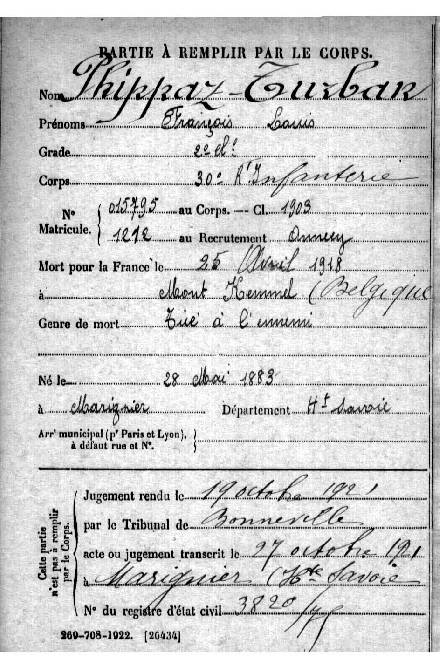 PARTIE À REMPLIR PAR LE CORPS.
Nom Phippaz-Turban
Prénoms François Louis
Grade 2e cl.
Corps 30e Rt Infanterie
No Matricule. 015795 au Corps. — Cl. 1903
1212 au Recrutement Annecy
Mort pour la France le 25 Avril 1918
à Mont Kemmel (Belgique
Genre de mort Tué à l'ennemi
Né le 28 Mai 1883
à Marignier Département Hte Savoie
Arrt municipal (pr Paris et Lyon), à défaut rue et No.
Cette partie n'est pas à remplir par le Corps.
Jugement rendu le 19 octobre 1921
par le Tribunal de Bonneville
acte ou jugement transcrit le 27 octobre 1921
à Marignier (Hte Savoie
No du registre d'état civil 3820
269-708-1922. [26434]